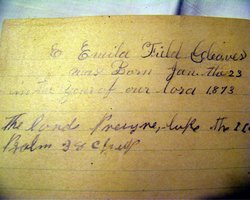 E Emila Field Cleaves
was Born Jan the 23
in the year of our lord 1873
The Lords Preyre, luke the
Psalm 23